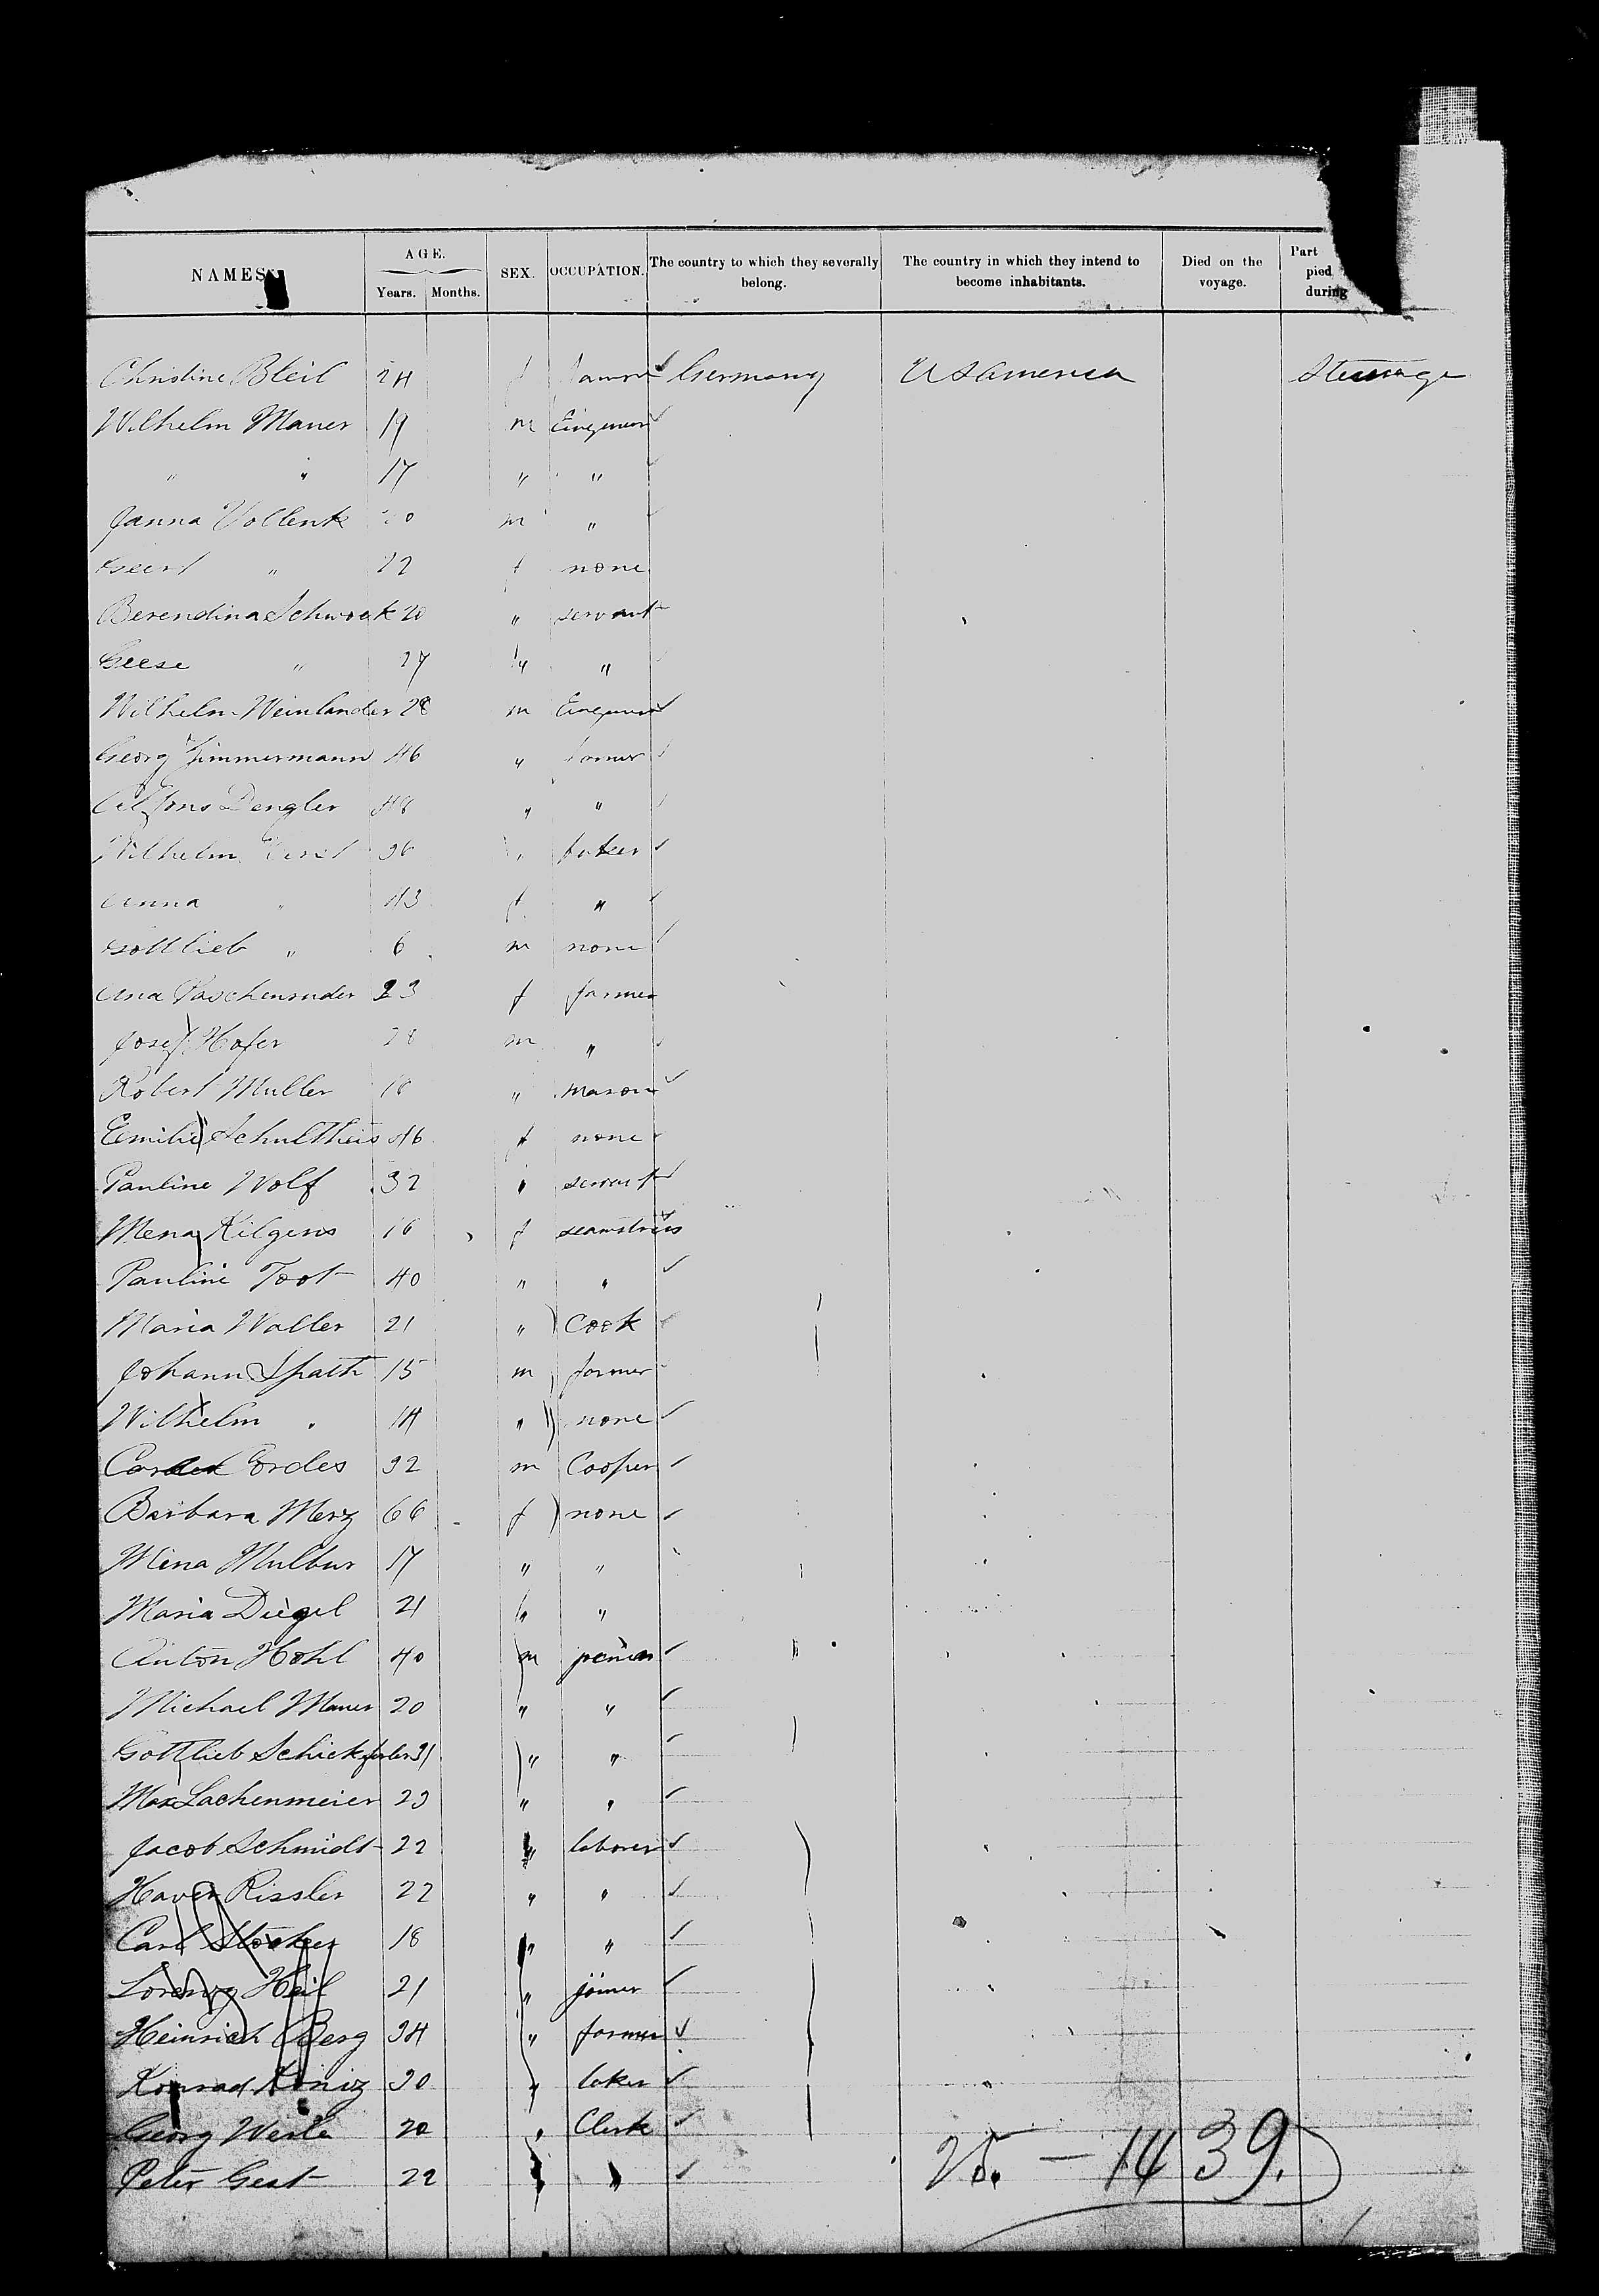 NAMES. AGE. Years. Months. SEX. OCCUPATION. The country to which they severally belong. The country in which they intend to become inhabitants. Died on the voyage. Part pied during
Christine Bleil 24 f Germany USAmerica Steerage
Wilhelm Maurer 19 m
" " 17 " "
Janna Vollenk m "
Geert " 22 f none
Berendina Schwock 20 " servant
Geese " 27 " "
Wilhelm Weinlander 28 m
Georg Zimmermann 46 " farmer
Dengler 48 " "
Wilhelm 36 " baker
Anna " 43 f "
Gottlieb " 6 m none
Ana 23 f farmer
Josef Hofer 28 m "
Robert Muller 18 " mason
Emilie Schultheis 46 f none
Pauline Wolf 32 " servant
Mena Hilgens 16 f seamstress
Pauline Toot 40 " "
Maria Walter 21 " Cook
Johann Spath 15 m farmer
Wilhelm " 14 " none
Cordes 32 m Cooper
Barbara Merz 66 f none
Mina Mulbur 17 " "
Maria Diegel 21 " "
Anton Hohl 40 m
Michael Maurer 20 " "
Gottlieb 31 " "
Max Lachenmeier 23 " "
Jacob Schmidt 22 " laborer
Xaver Rissler 22 " "
Carl Stocker 18 " "
Heil 21 " joiner
Heinrich Berg 34 " farmer
Konrad König 30 " baker
Georg Weile 20 " Clerk
Peter Gest 22 " "
25. — 14 39.